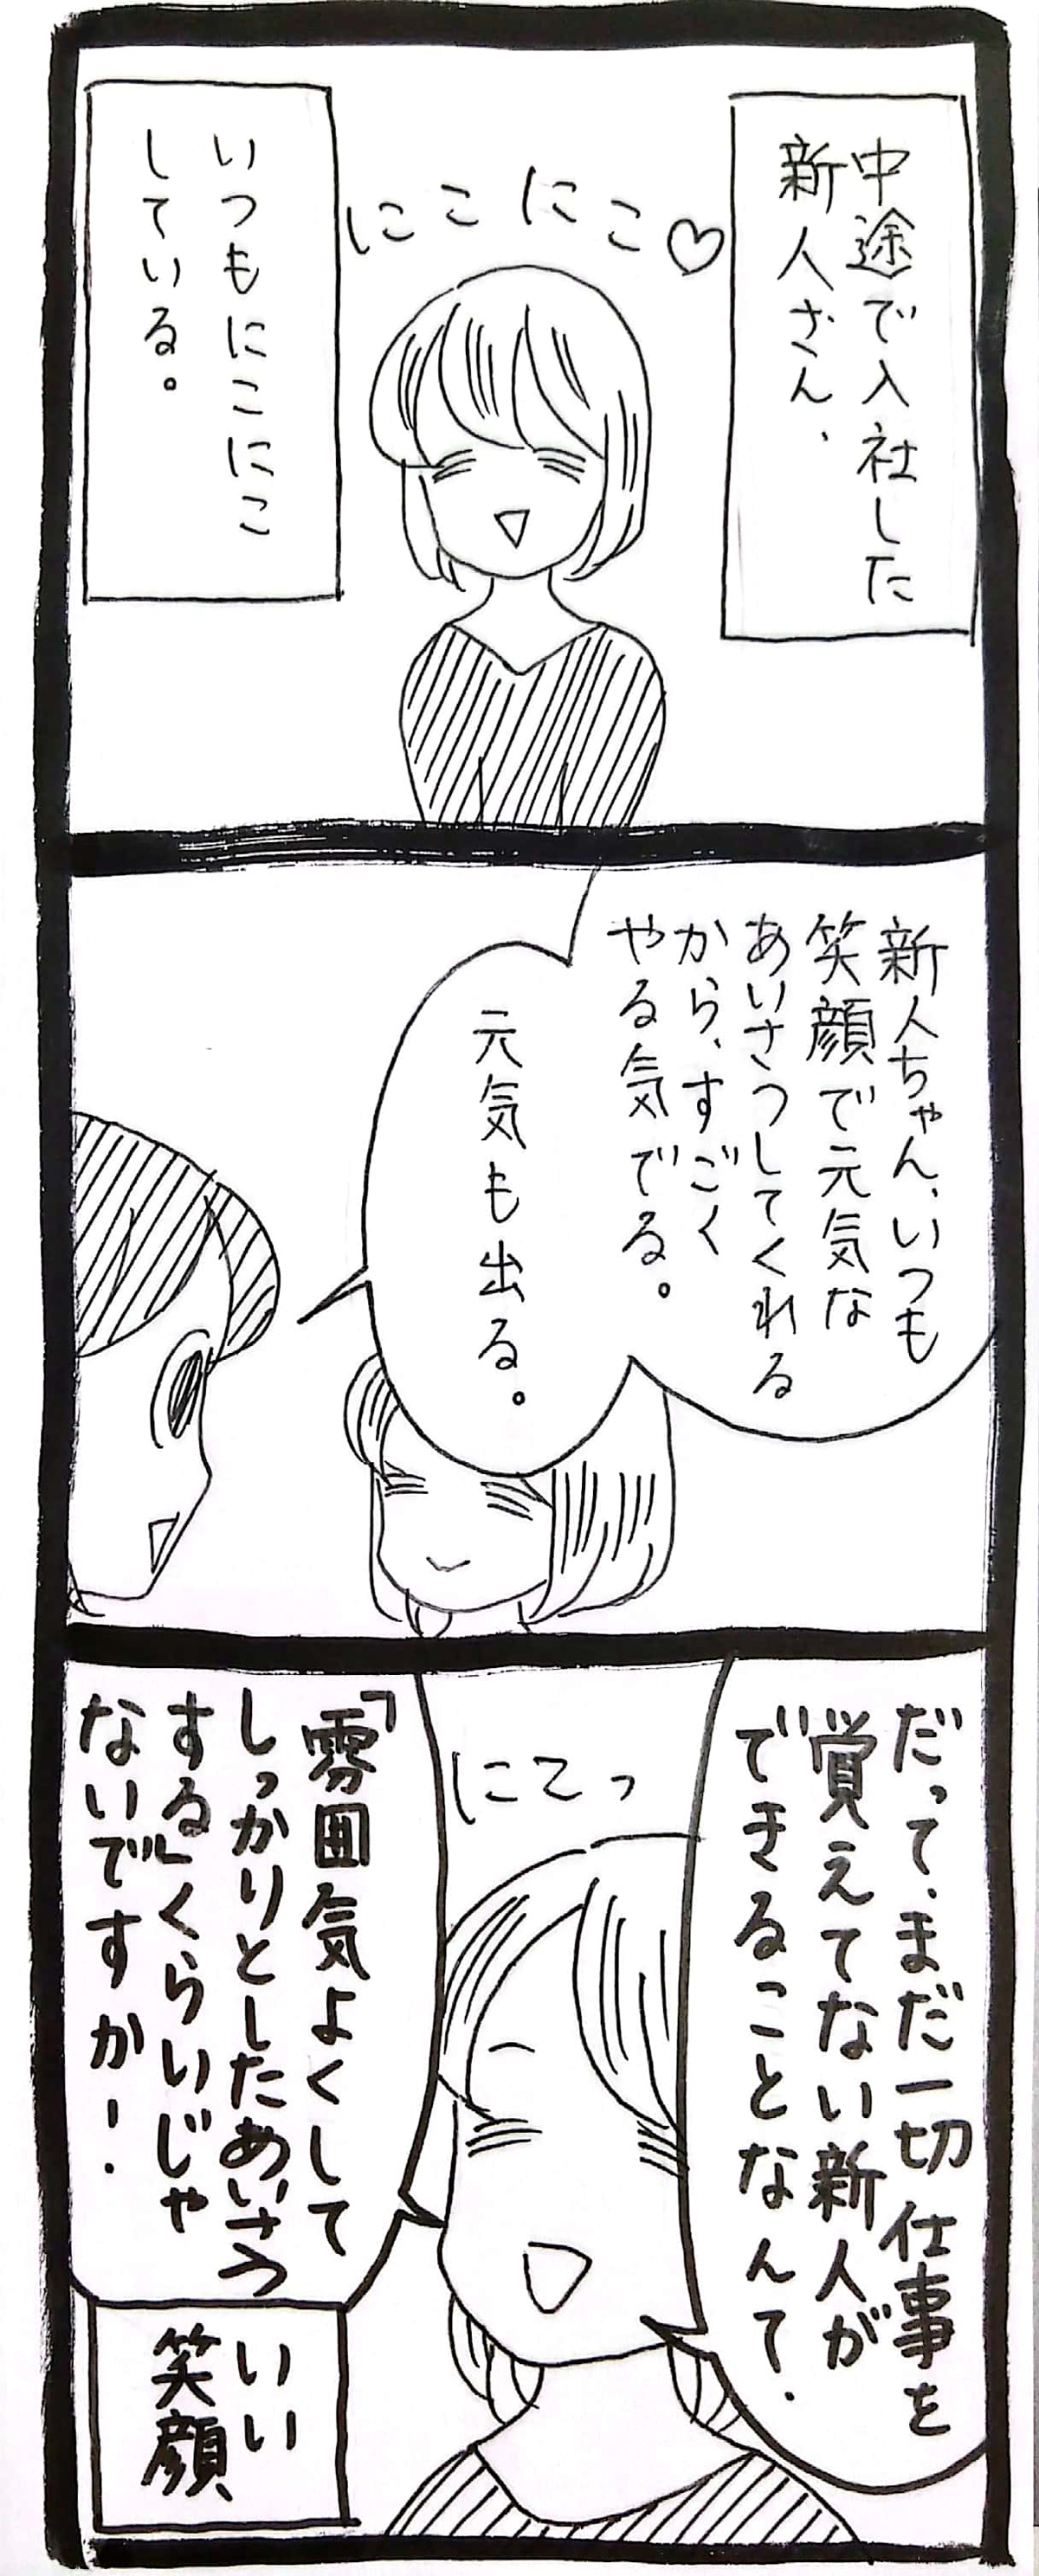 中途で入社した
新人さん、
にこにこ♡
いつもにこにこ
している。
新人ちゃん、いつも
笑顔で元気な
あいさつしてくれる
から、すごく
やる気でる。
元気も出る。
だって、まだ一切仕事を
覚えてない新人が
できることなんて、
にこっ
「雰囲気よくして
しっかりとしたあいさつ
する」くらいじゃ
ないですかー!
いい
笑顔